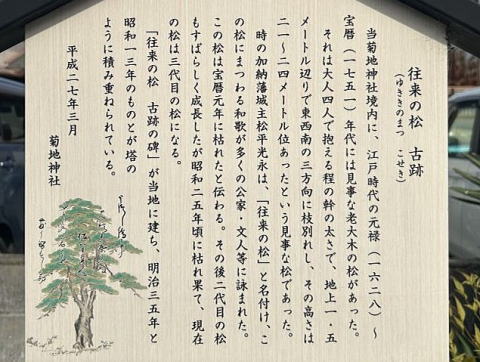 往来の松 古跡
(ゆききのまつ こせき)
当菊地神社境内に、江戸時代の元禄(一六二八)~
宝暦(一七五一)年代には見事な老大木の松があった。
それは大人四人で抱える程の幹の太さで、地上一・五
メートル辺りで東西南の三方向に枝別れし、その高さは
二一~二四メートル位あったという見事な松であった。
時の加納藩城主松平光永は、「往来の松」と名付け、こ
の松にまつわる和歌が多くの公家・文人等に詠まれた。
この松は宝暦元年に枯れたと伝わる。その後二代目の松
もすばらしく成長したが昭和二五年頃に枯れ果て、現在
の松は三代目の松になる。
「往来の松 古跡の碑」が当地に建ち、明治三五年と
昭和一三年のものとが塔の
ように積み重ねられている。
平成二七年三月
菊地神社